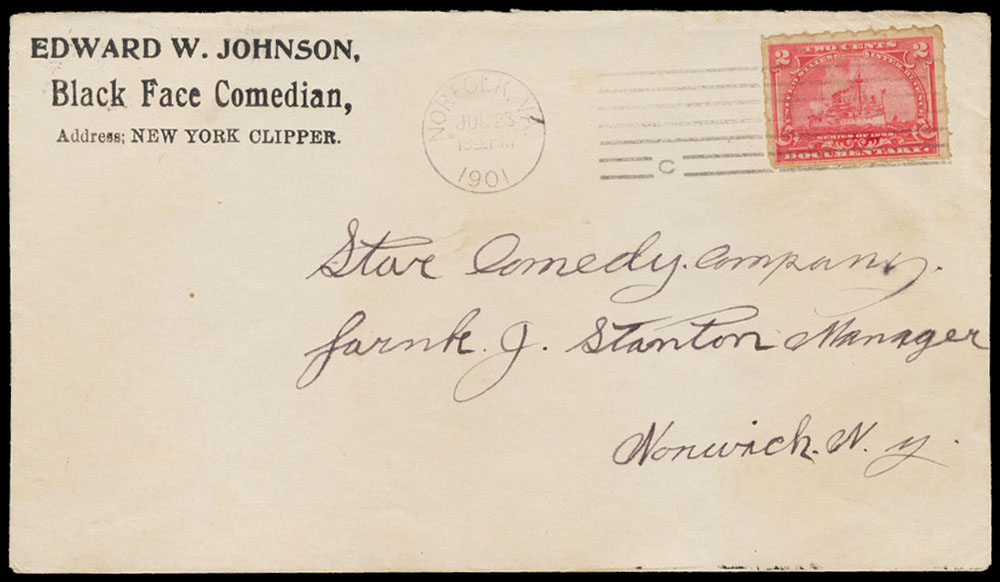 EDWARD W. JOHNSON,
Black Face Comedian,
Address; NEW YORK CLIPPER.
NORFOLK, VA.
JUL 23
1901
C
2 TWO CENTS 2
UNITED STATES INTER. REVENUE
SERIES OF 1898
DOCUMENTARY.
Star Comedy. Company.
farnk. J. Stanton Manager
Norwich. N. y.